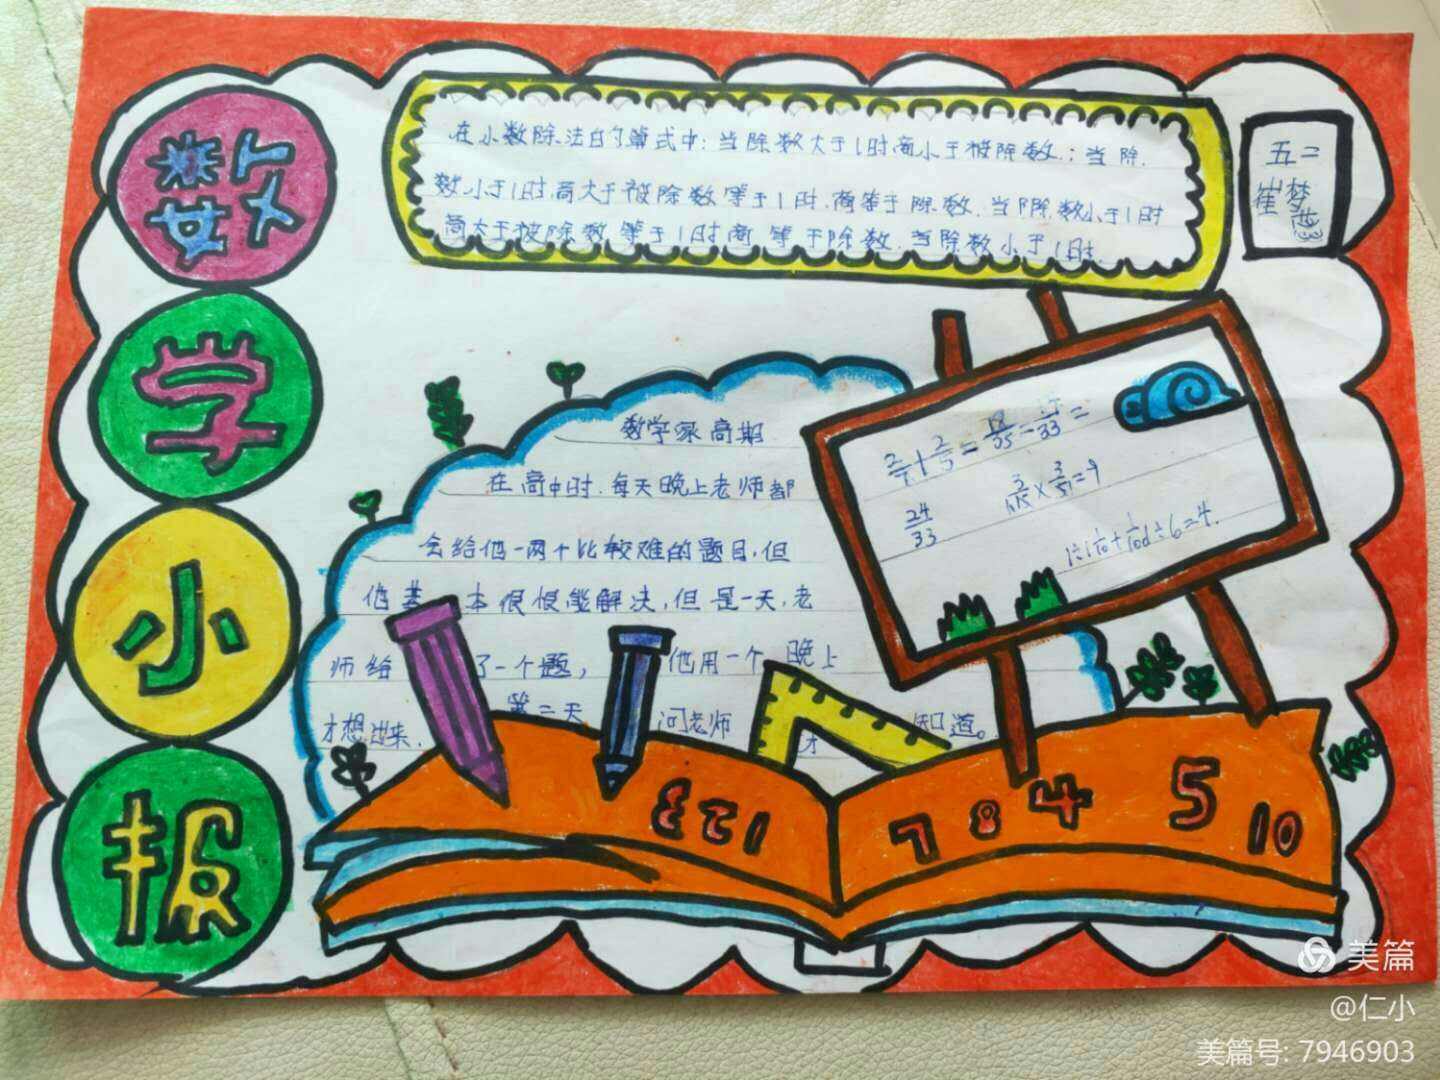 数
学
小
报
在小数除法的算式中:当除数大于1时商小于被除数.;当除.
数小于1时.商大于被除数等于1时.商等于除数.当除.数小于1时
商大于被除数等于1时商等于除数.当除数小于1时.
五二
崔梦
数学家高期
在高中时.每天晚上老师都
会给他一两个比较难的题目,但
他基本很很能解决,但是一天,老
师给了一个题,他用一个晚上
才想出来.第二天问老师才知道。
2/7+2/5=
24/33
1 2 3
7 8 4 5 10
美篇
@仁小
美篇号: 7946903